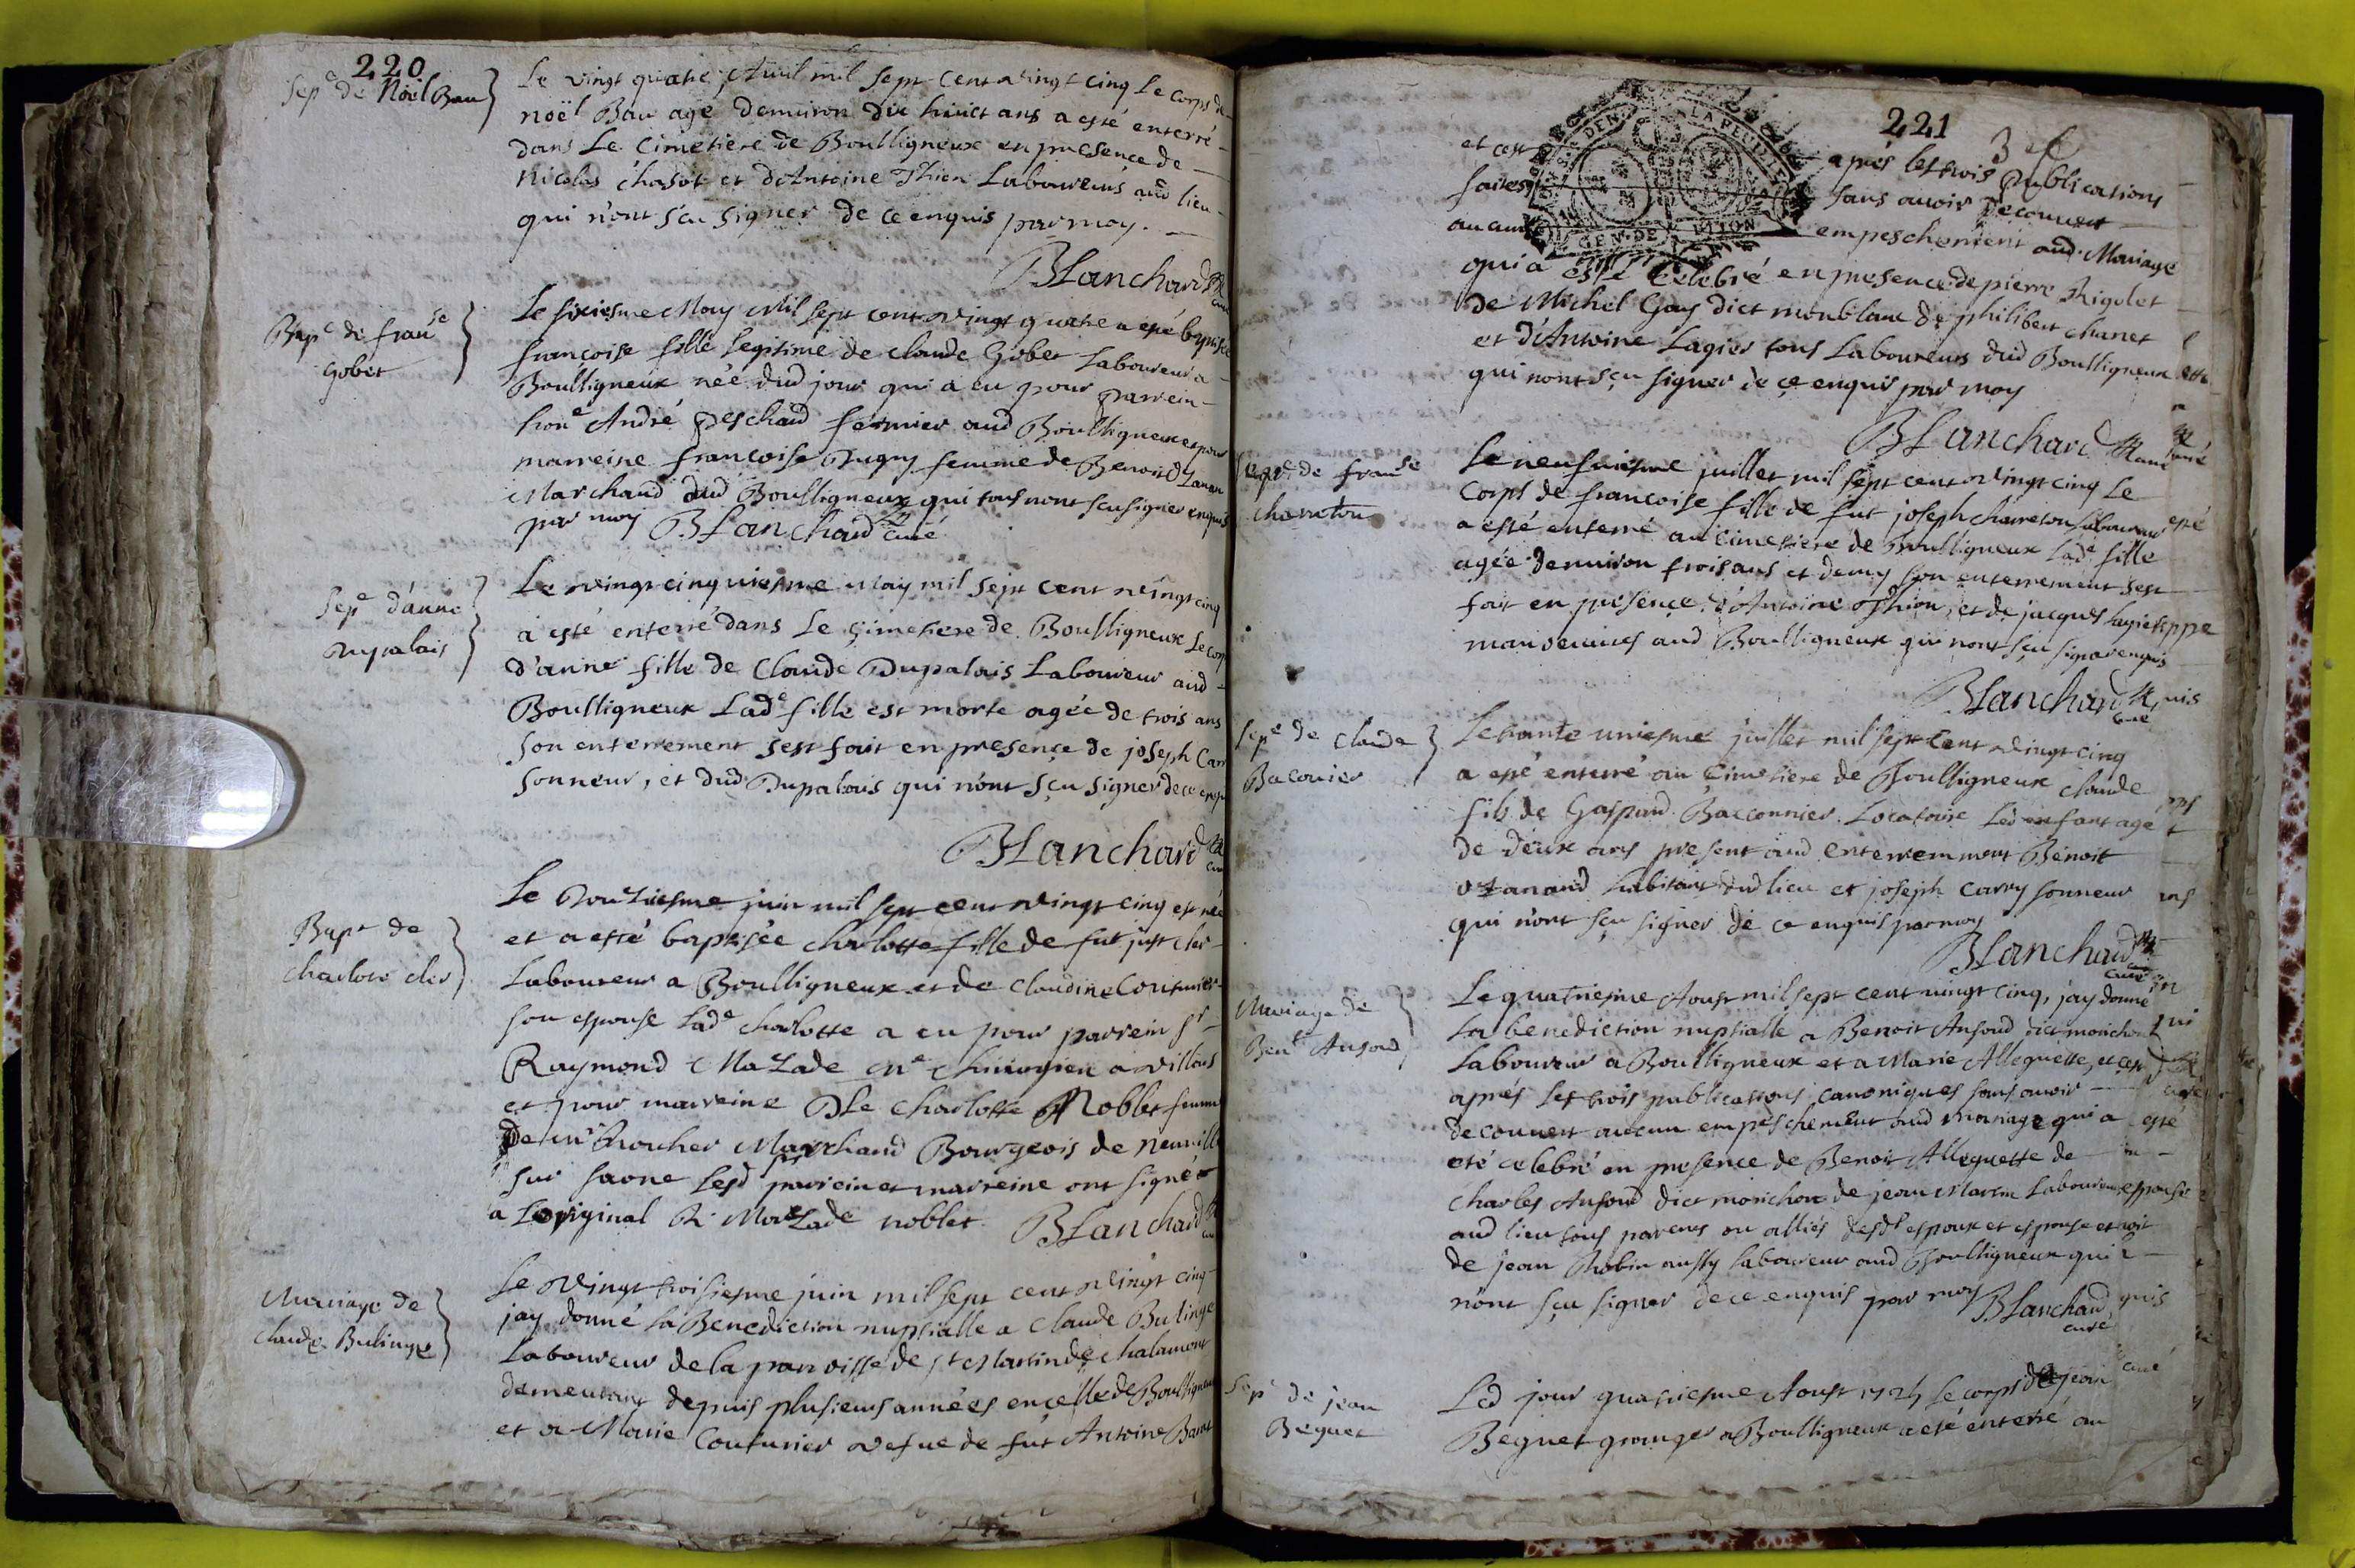 220
Sepe de Noel Bau
Le vingt quatre Avril mil sept cent vingt cinq Le corps de
noël Bau agé denuiron dix huict ans a esté enterré
dans Le Cimetiere de Boulligneux en presence de
Nicolas chasot et d'Antoine Thion Laboureurs aud lieu
qui n'ont sçu signer de ce enquis par moy.
Blanchard
Bape de franse
Gobet
Le sixiesme May Mil sept cent vingt quatre a esté baptisée
françoise fille legitime de claude Gobet Laboureur a
Boulligneux née dud jour qui a eu pour parrein
hone André Peschaud fermier aud Boulligneux et pour
marreine francoise Dugry femme de Benoid
Marchand dud Boulligneux qui tous nont sçu signer enquis
par moy Blanchard curé
Sepe d'anne
Dupalais
Le vingt cinquiesme May mil sept cent vingt cinq
a esté enterré dans Le Cimetiere de Boulligneux Le corp
d'anne fille de Claude Dupalais Laboureur aud
Boulligneux Lade fille est morte agée de trois ans
son enterrement sest fait en presence de joseph
sonneur, et dud Dupalais qui n'ont sçu signer de ce
Blanchard
Bapt de
charlote cler
Le Douziesme juin mil sept cent vingt cinq est née
et a esté baptisée charlotte fille de fut just cler
Laboureur a Boulligneux et de Claudine Couturier
son espouse Lade charlotte a eu pour parrein sr
Raymond Mazade me chirurgien a villars
et pour marreine Dlle Charlotte Noblet femme
De mr Rocher Marchand Bourgeois de neuville
sur saone Lesd parrein et marreine ont signé
a Loriginal R. Mazade noblet. Blanchard
Mariage de
Claude Bulinge
Le vingt troisiesme juin mil sept cent vingt cinq
jay donné la Benediction nuptialle a Claude Bulinge
Laboureur de la parroisse de st Martin de chalamont
demeurant depuis plusieurs années en celle de Boulligneux
et a Marie Couturier vefue de fut Antoine
221
et cest après les trois publications
faites sans avoir Decouvert
aucun empeschement aud. Mariage
qui a esté Celebré en presence de pierre Rigolet
de Michel Gay dict monblanc de philibert chanet
et d'Antoine Lagier tous Laboureurs dud Boulligneux
qui nont sçu signer de ce enquis par moy
Blanchard
Sepe de franse
chareton
Le neufuiesme juillet mil sept cent vingt cinq Le
Corps de francoise fille de fut joseph chareton laboureur
a esté enterré au Cimetiere de Boulligneux Lade fille
agée denuiron trois ans et demy son enterrement sest
fait en presence d'Antoine Thion, et de jacques
manoeuures aud Boulligneux qui nont sçu signer enquis
Blanchard
curé
Sepe de Claude
Baconier
Le trante uniesme juillet mil sept cent vingt cinq
a esté enterré au Cimetiere de Boulligneux claude
fils de Gaspard Baconnier Locataire Led enfant agé
de deux ans present aud enterremment Benoit
habitant dud lieu et joseph Carry sonneur
qui n'ont sçu signer de ce enquis par moy
Blanchard
curé
Mariage de
Bent Ansoud
Le quatriesme Aoust mil sept cent vingt cinq, jay donné
La benediction nuptialle a Benoit Ansoud dict monchon
Laboureur a Boulligneux et a Marie Alleguette, et cest
aprés les trois publications canoniques sans avoir
decouvert aucun empeschement aud mariage qui a
eté celebré en presence de Benoit Alleguette de
Charles Ansoud dict monchon de jean Marem Laboureurs
aud lieu tous parens ou alliés desd espoux et espouse et
de jean Robin aussy laboureur aud Boulligneux qui
n'ont sçu signer de ce enquis par moy Blanchard
curé
Sepe de jean
Beguet
Led jour quatriesme Aoust 1725 le corps de jean
Beguet granger a Boulligneux a eté enterré au